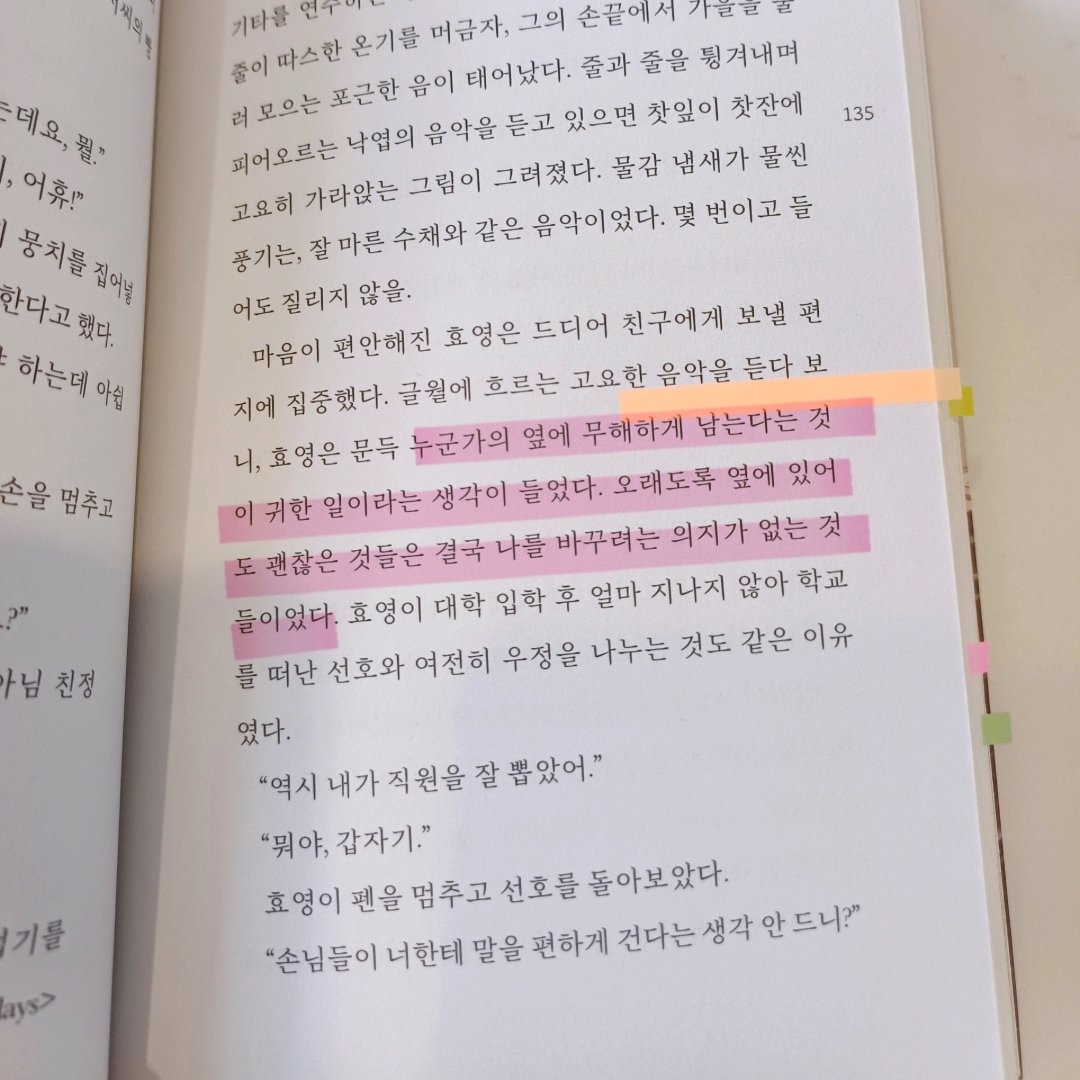 는데요, 뭘."
, 어휴!"
뭉치를 집어넣
한다고 했다.
하는데 아쉽
손을 멈추고
.?"
아님 친정
기를
days>
기타를
줄이 따스한 온기를 머금자, 그의 손끝에서 가을을 불
러 모으는 포근한 음이 태어났다. 줄과 줄을 튕겨내며
피어오르는 낙엽의 음악을 듣고 있으면 찻잎이 찻잔에
고요히 가라앉는 그림이 그려졌다. 물감 냄새가 물씬
풍기는, 잘 마른 수채와 같은 음악이었다. 몇 번이고 들
어도 질리지 않을.
마음이 편안해진 효영은 드디어 친구에게 보낼 편
지에 집중했다. 글월에 흐르는 고요한 음악을 듣다 보
니, 효영은 문득 누군가의 옆에 무해하게 남는다는 것
이 귀한 일이라는 생각이 들었다. 오래도록 옆에 있어
도 괜찮은 것들은 결국 나를 바꾸려는 의지가 없는 것
들이었다. 효영이 대학 입학 후 얼마 지나지 않아 학교
를 떠난 선호와 여전히 우정을 나누는 것도 같은 이유
였다.
"역시 내가 직원을 잘 뽑았어."
"뭐야, 갑자기."
효영이 펜을 멈추고 선호를 돌아보았다.
"손님들이 너한테 말을 편하게 건다는 생각 안 드니?"
135